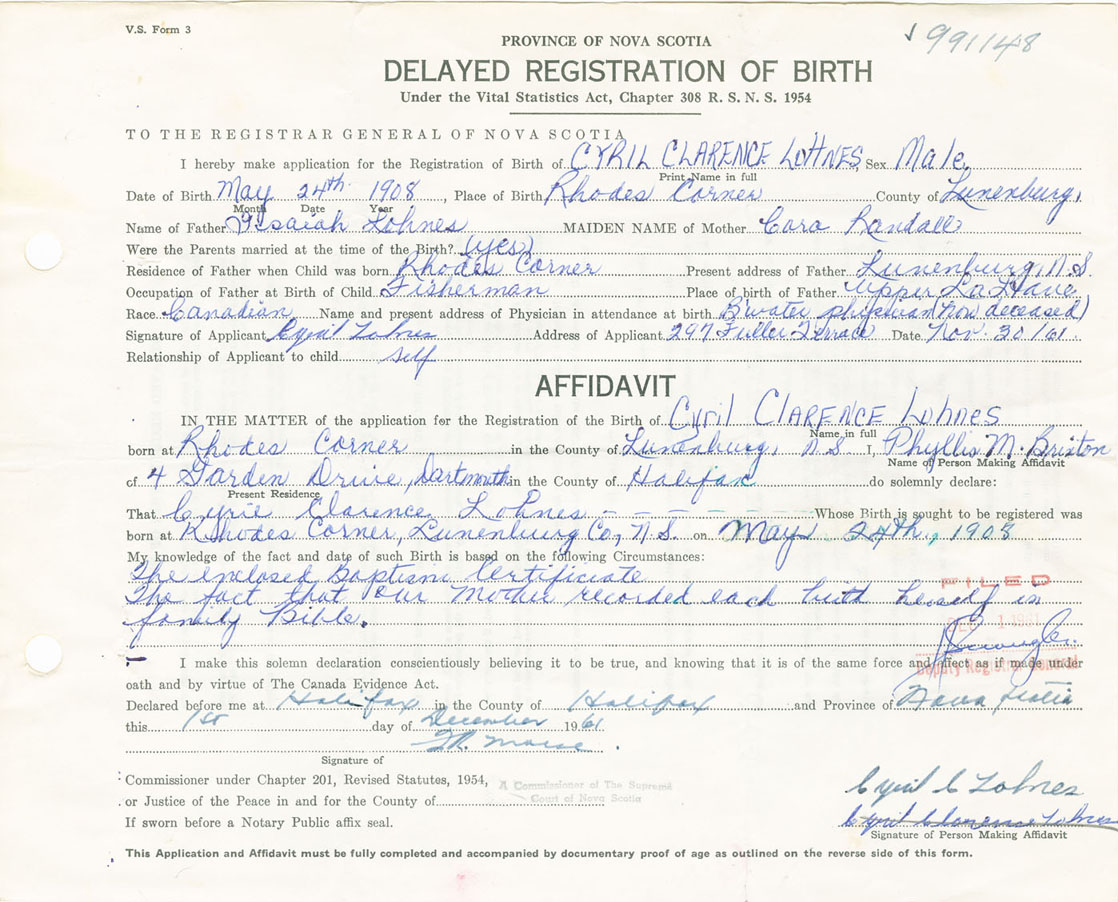 V.S. Form 3
991148
PROVINCE OF NOVA SCOTIA
DELAYED REGISTRATION OF BIRTH
Under the Vital Statistics Act, Chapter 308 R. S. N. S. 1954
TO THE REGISTRAR GENERAL OF NOVA SCOTIA
I hereby make application for the Registration of Birth of CYRIL CLARENCE LOHNES Sex Male
Print Name in full
Date of Birth May 24th 1908, Place of Birth Rhodes Corner County of Lunenburg,
Month Date Year
Name of Father Isaiah Lohnes MAIDEN NAME of Mother Cora Randall
Were the Parents married at the time of the Birth? (yes)
Residence of Father when Child was born Rhodes Corner Present address of Father Lunenburg, N.S.
Occupation of Father at Birth of Child Fisherman Place of birth of Father Upper La Have
Race Canadian Name and present address of Physician in attendance at birth B'water physician (now deceased)
Signature of Applicant Cyril Lohnes Address of Applicant 297 Fuller Terrace Date Nov. 30/61
Relationship of Applicant to child self
AFFIDAVIT
IN THE MATTER of the application for the Registration of the Birth of Cyril CLARENCE Lohnes
Name in full
born at Rhodes Corner in the County of Lunenburg, N.S. I, Phyllis M. Brixton
Name of Person Making Affidavit
of 4 Garden Drive, Dartmouth in the County of Halifax do solemnly declare:
Present Residence
That Cyril Clarence Lohnes Whose Birth is sought to be registered was
born at Rhodes Corner, Lunenburg Co, N.S. on May 24th, 1908
My knowledge of the fact and date of such Birth is based on the following Circumstances:
The enclosed Baptism Certificiate
The fact that our Mother recorded each birth herself in
family Bible.
FILED
DEC 1 1961
Deputy Registrar General
I make this solemn declaration conscientiously believing it to be true, and knowing that it is of the same force and effect as if made under
oath and by virtue of The Canada Evidence Act.
Declared before me at Halifax in the County of Halifax and Province of Nova Scotia
this 1st day of December 1961
Signature of
Commissioner under Chapter 201, Revised Statutes, 1954, A Commissioner of The Supreme
or Justice of the Peace in and for the County of Court of Nova Scotia
If sworn before a Notary Public affix seal.
Cyril C Lohnes
Cyril Clarence Lohnes
Signature of Person Making Affidavit
This Application and Affidavit must be fully completed and accompanied by documentary proof of age as outlined on the reverse side of this form.